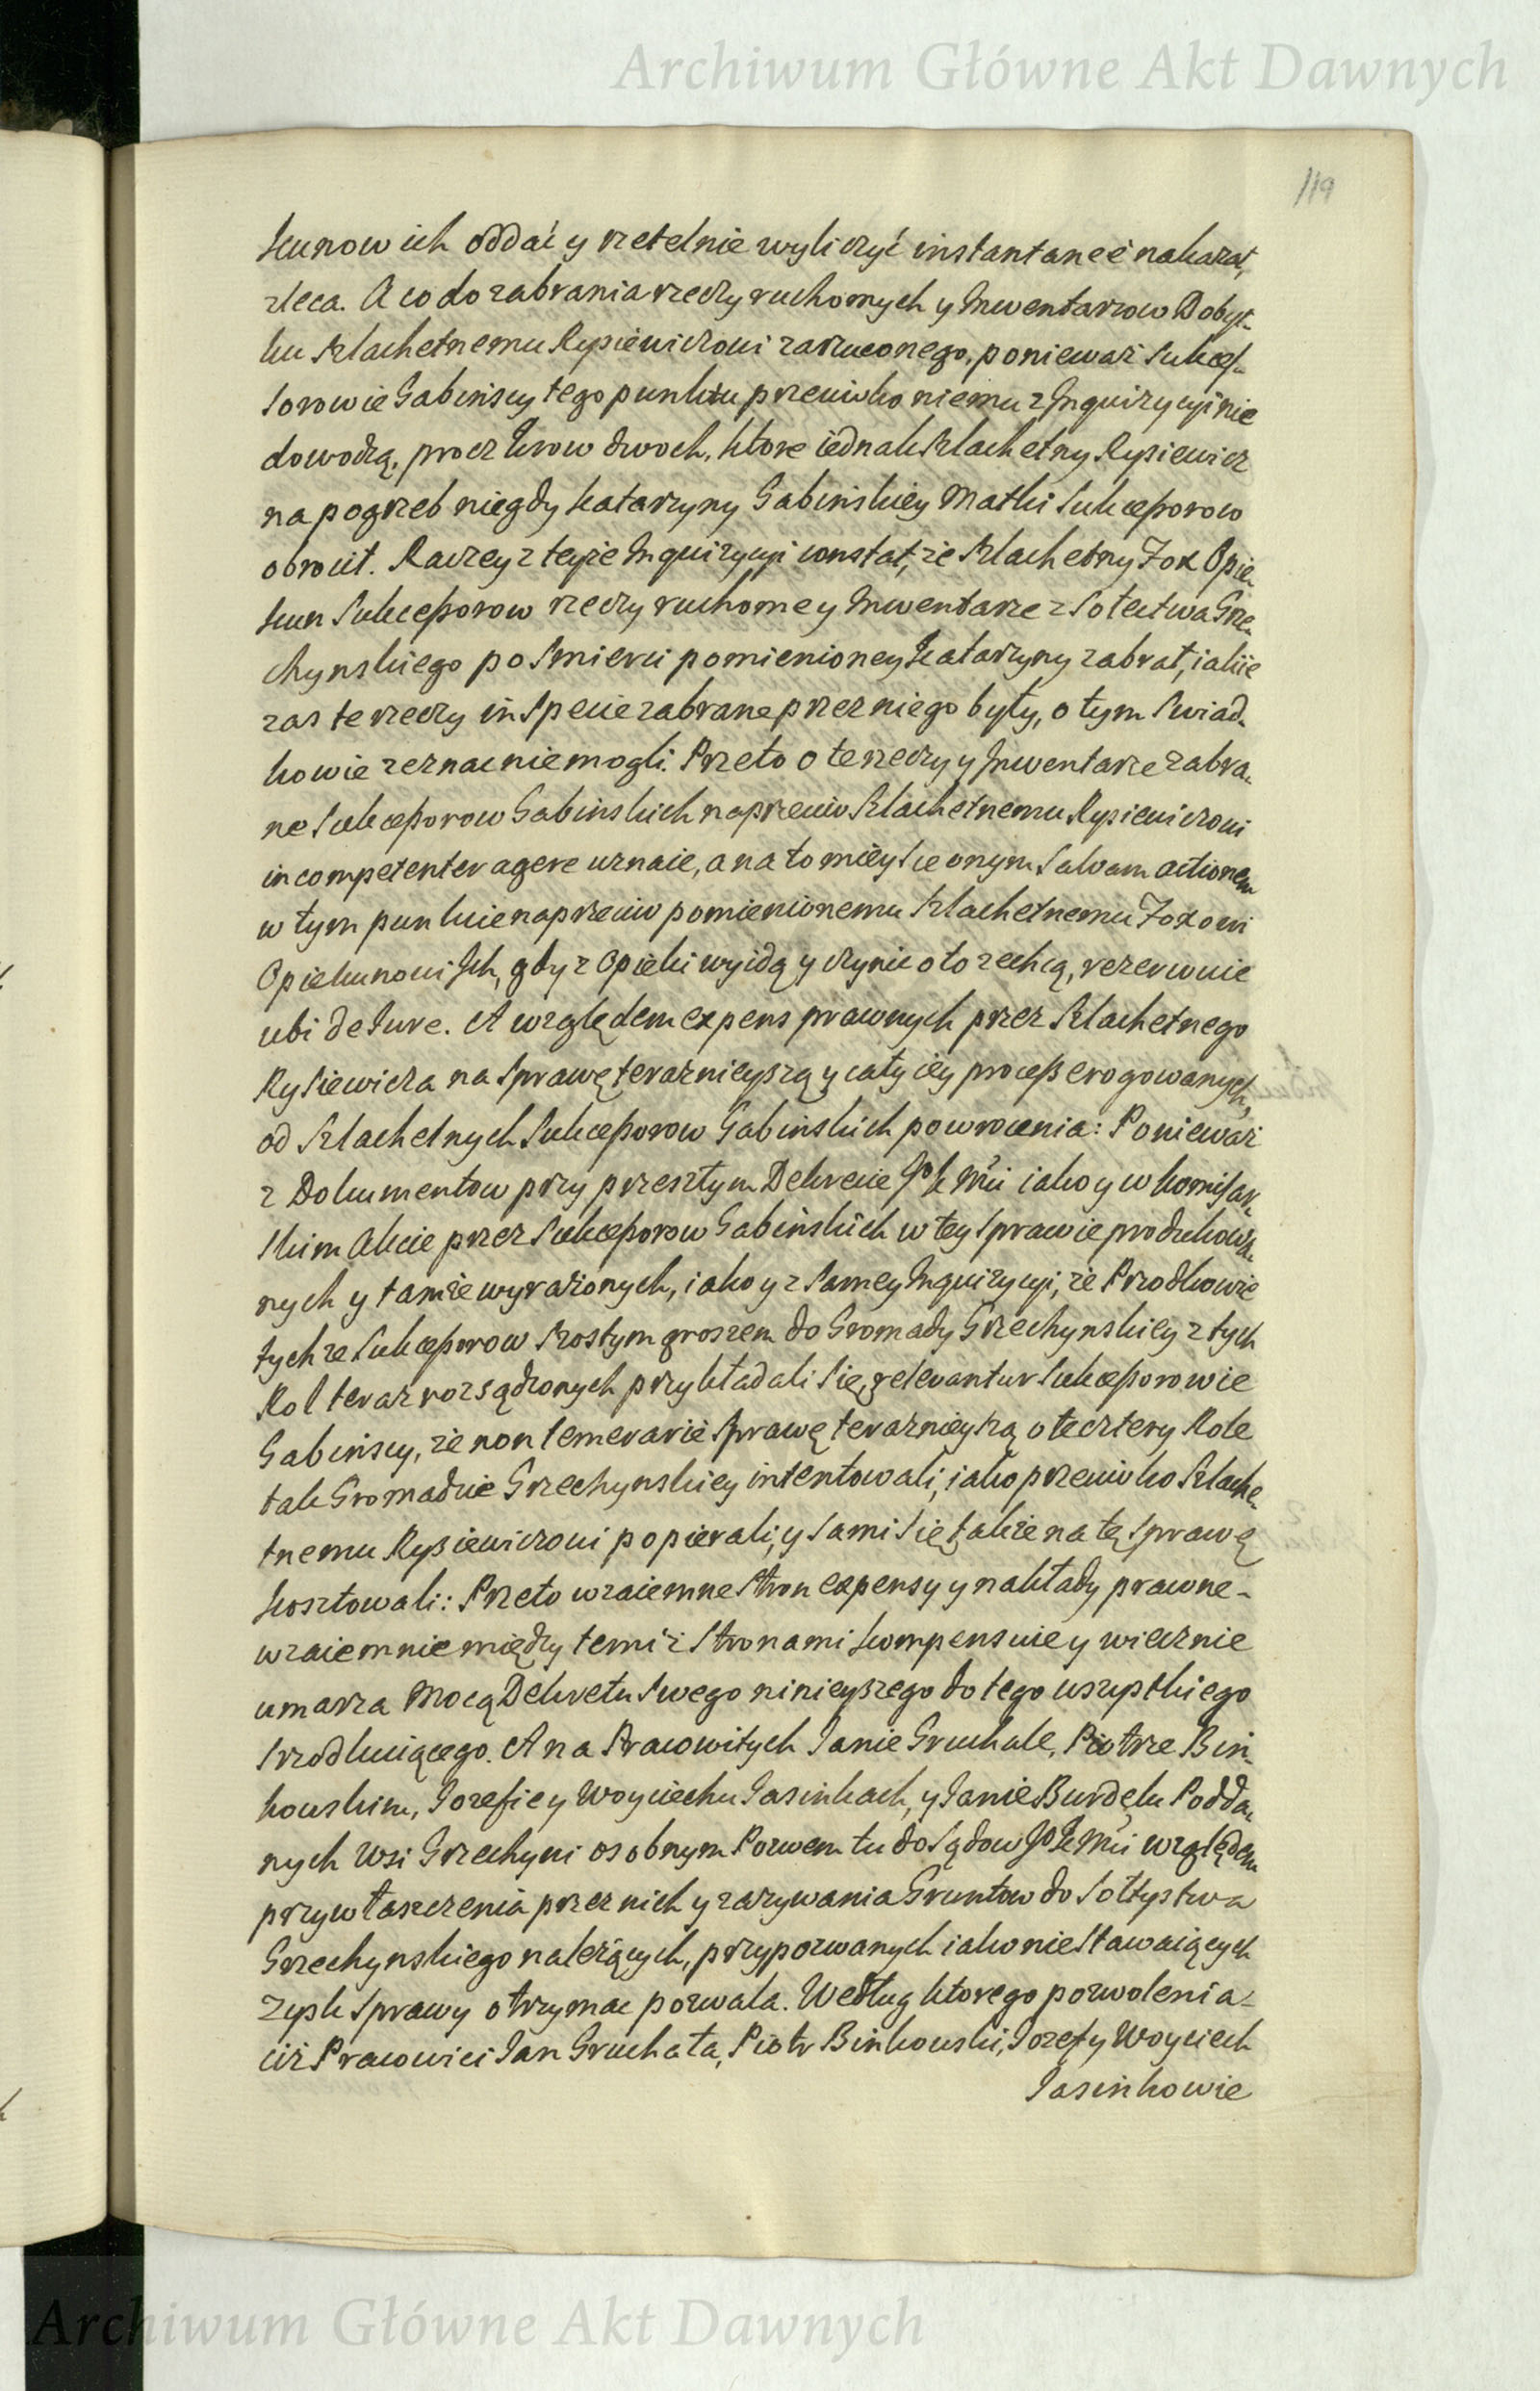 Archiwum Główne Akt Dawnych
119
kunow ich oddać y rzetelnie wyliczyć instantaneè nakazał,
zleca. A co do zabrania rzeczy ruchomych y Inwentarzow Dobyt-
ku Szlachetnemu Rysiewiczowi zarzuconego, ponieważ Sukces-
sorowie Gabińscy tego punktu przeciwko niemu z Inquizycyi nie
dowodzą, procz krow dwoch, ktore iednak Szlachetny Rysiewicz
na pogrzeb niegdy Katarzyny Gabińskiey Matki Sukcessorow
obrocił. Raczey z teyże Inquizycyi constat, że Szlachetny Fox Opie-
kun Sukcessorow rzeczy ruchome y Inwentarze z Sołectwa Grze-
chynskiego po Smierci pomienioney Katarzyny zabrał, iakie
zas te rzeczy in Specie zabrane przez niego były, o tym Swiad-
kowie zeznac nie mogli. Przeto o te rzeczy y Inwentarze zabra-
ne Sukcessorow Gabinskich naprzeciw Szlachetnemu Rysiewiczowi
incompetenter agere uznaie, a na to mieysce onym Salvam actionem
w tym punkcie naprzeciw pomienionemu Szlachetnemu Foxowi
Opiekunowi Ich, gdy z Opieki wyidą y czynic o to zechcą, rezerwuie
ubi de Jure. A względem expens prawnych przez Szlachetnego
Rysiewicza na Sprawę teraznieyszą y cały iey process erogowanych,
od Szlachetnych Sukcessorow Gabińskich powrocenia: Ponieważ
z Dokumentow przy przeszłym Dekrecie JoKMci iako y w komissar-
skim Akcie przez Sukcessorow Gabińskich w tey Sprawie produkowa-
nych y tamże wyrażonych, iako y z Samey Inquizycyi, że Przodkowie
tychże Sukcessorow Szostym groszem do Gromady Grzechynskiey z tych
Rol teraz rozsądzonych przykładali Się, relevantur Sukcessorowie
Gabińscy, że non temerariè Sprawę teraznieyszą o te cztery Role
tak Gromadzie Grzechynskiey intentowali, iako przeciwko Szlache-
tnemu Rysiewiczowi popierali, y Sami Się także na tę Sprawę
kosztowali: Przeto wzaiemne Stron expensy y nakłady prawne-
wzaiemnie między temiż Stronami kompensuie y wiecznie
umarza Mocą Dekretu Swego ninieyszego do tego wszystkiego
Srzodkuiącego. A na Pracowitych Janie Gruchale, Piotrze Bin-
kowskim, Jozefie y Woyciechu Jasinkach, y Janie Burdęlu Podda-
nych Wsi Grzechyni osobnym Pozwem tu do Sądow JoKMci względem
przywłaszczenia przez nich y zażywania Gruntow do Sołtystwa
Grzechynskiego należących, przypozwanych iako nie Stawaiących
zysk Sprawy otrzymac pozwala. Według ktorego pozwolenia-
ciż Pracowici Jan Gruchała, Piotr Binkowski, Jozef y Woyciech
Jasinkowie
Archiwum Główne Akt Dawnych